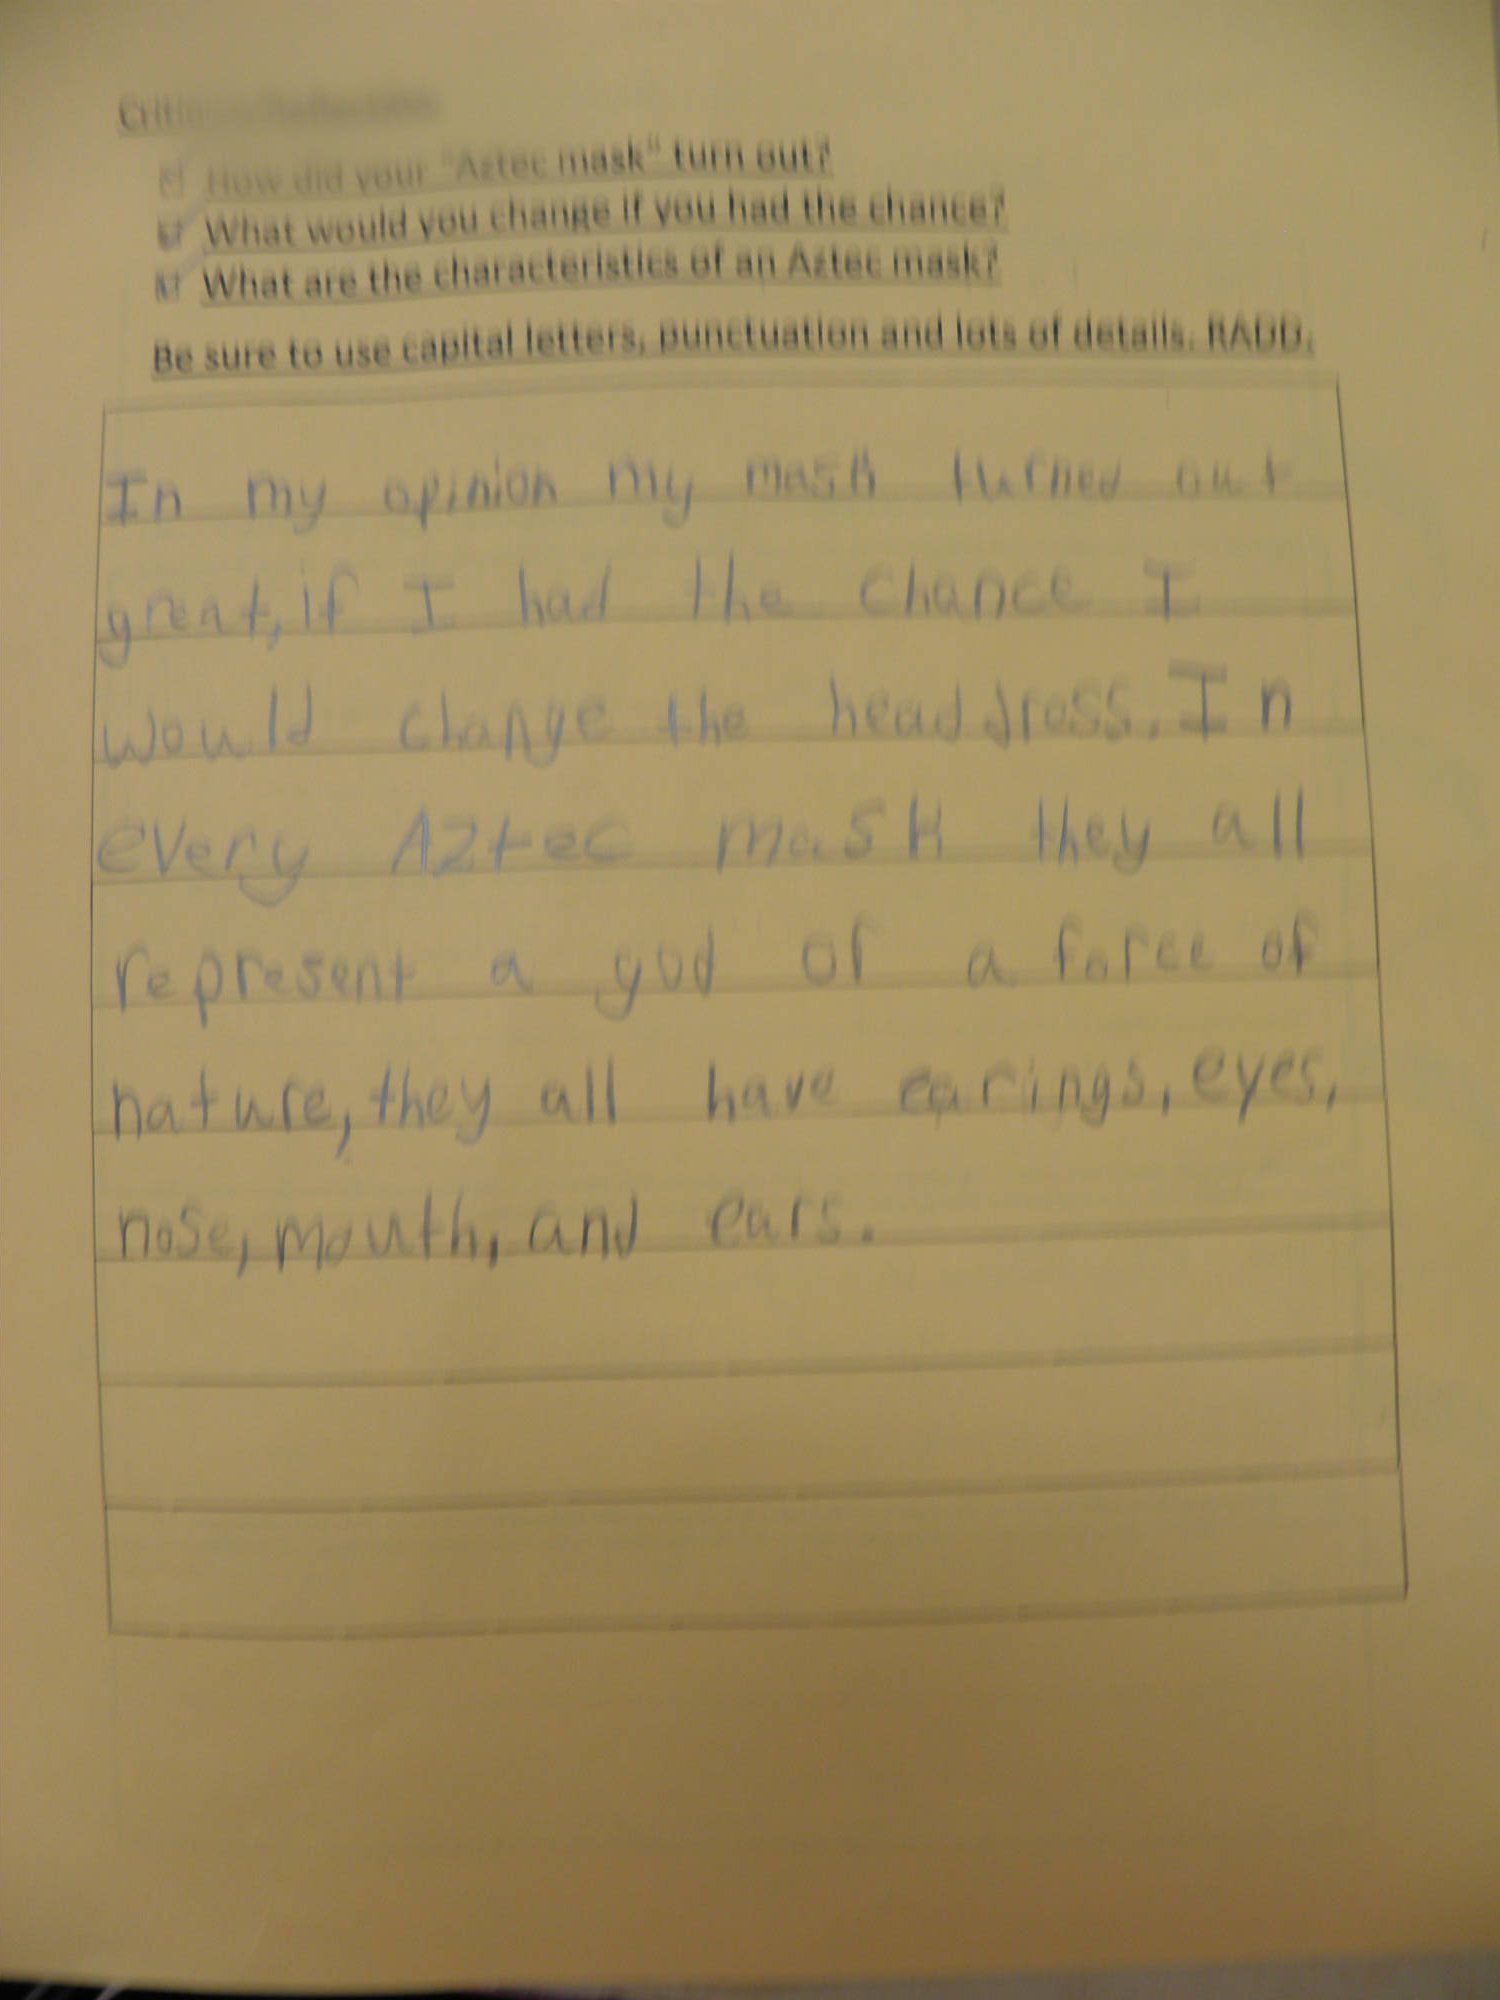 How did your "Aztec mask" turn out?
What would you change if you had the chance?
What are the characteristics of an Aztec mask?
Be sure to use capital letters, punctuation and lots of details. RADD.
In my opinion my mask turned out
great, if I had the chance I
would change the headdress. In
every Aztec mask they all
represent a god or a force of
nature, they all have earings, eyes,
nose, mouth, and ears.